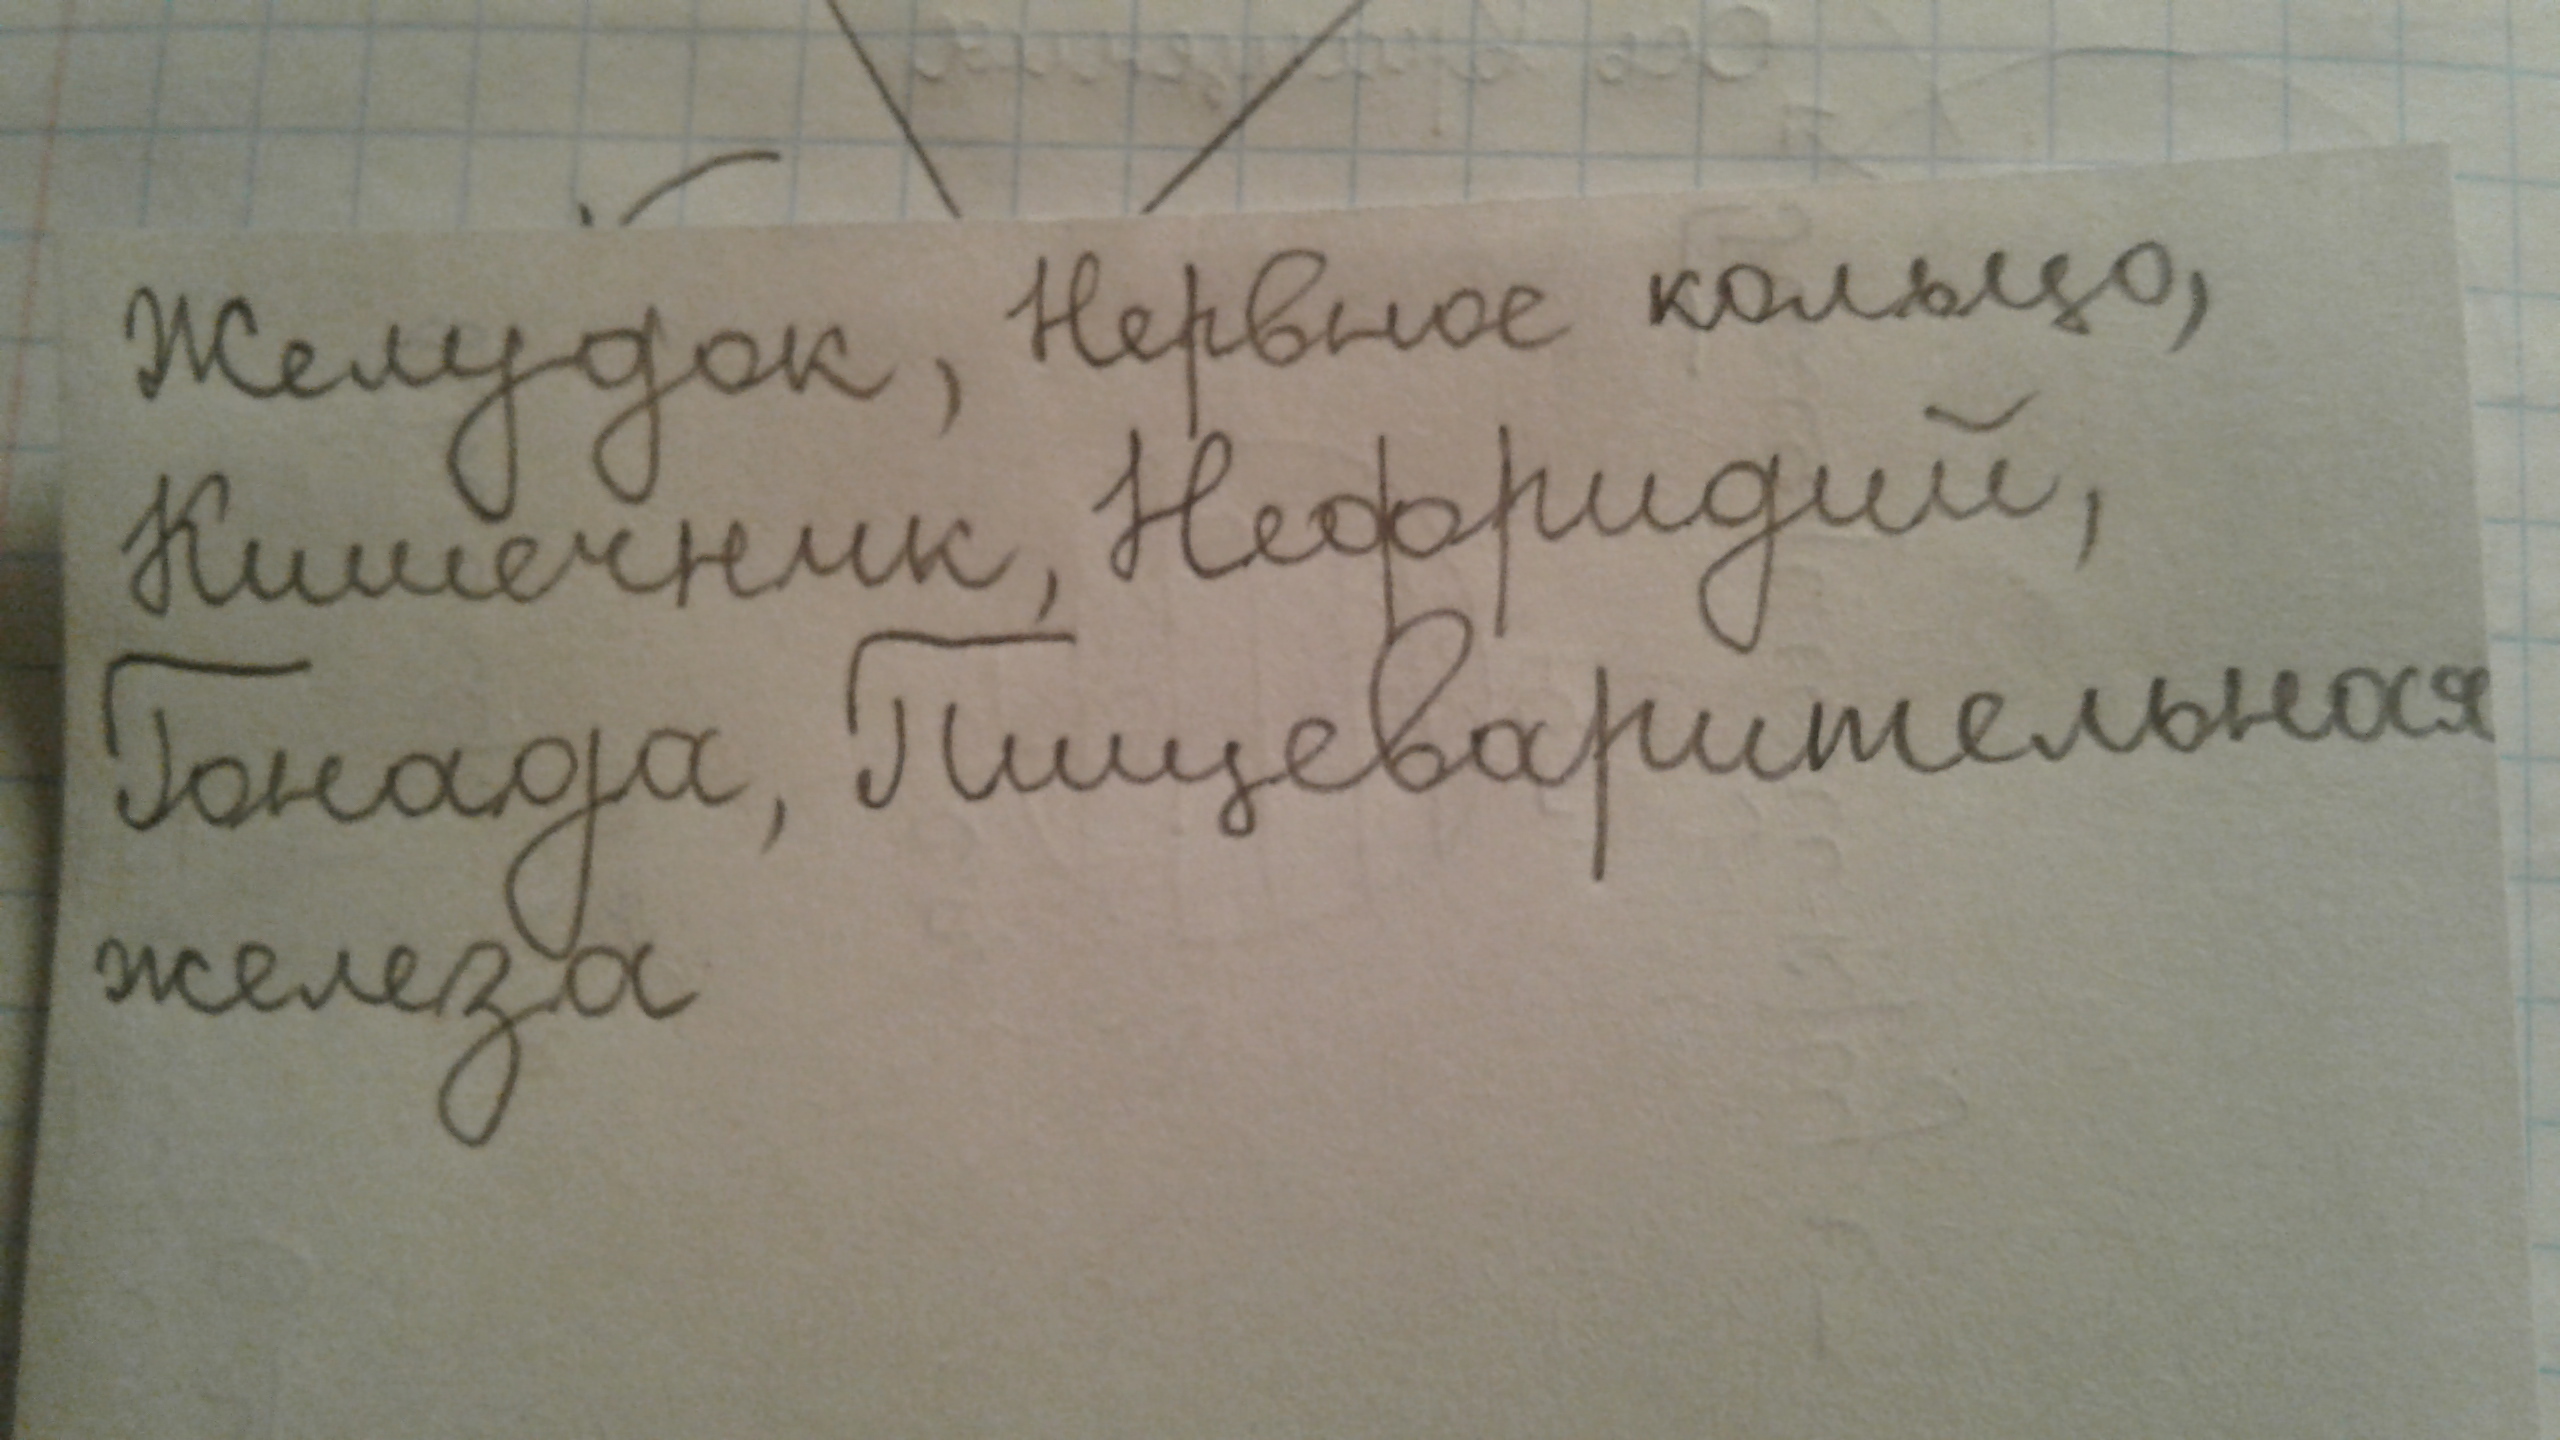 Желудок, Нервное кольцо,
Кишечник, Нефридий,
Гонада, Пищеварительная
железа